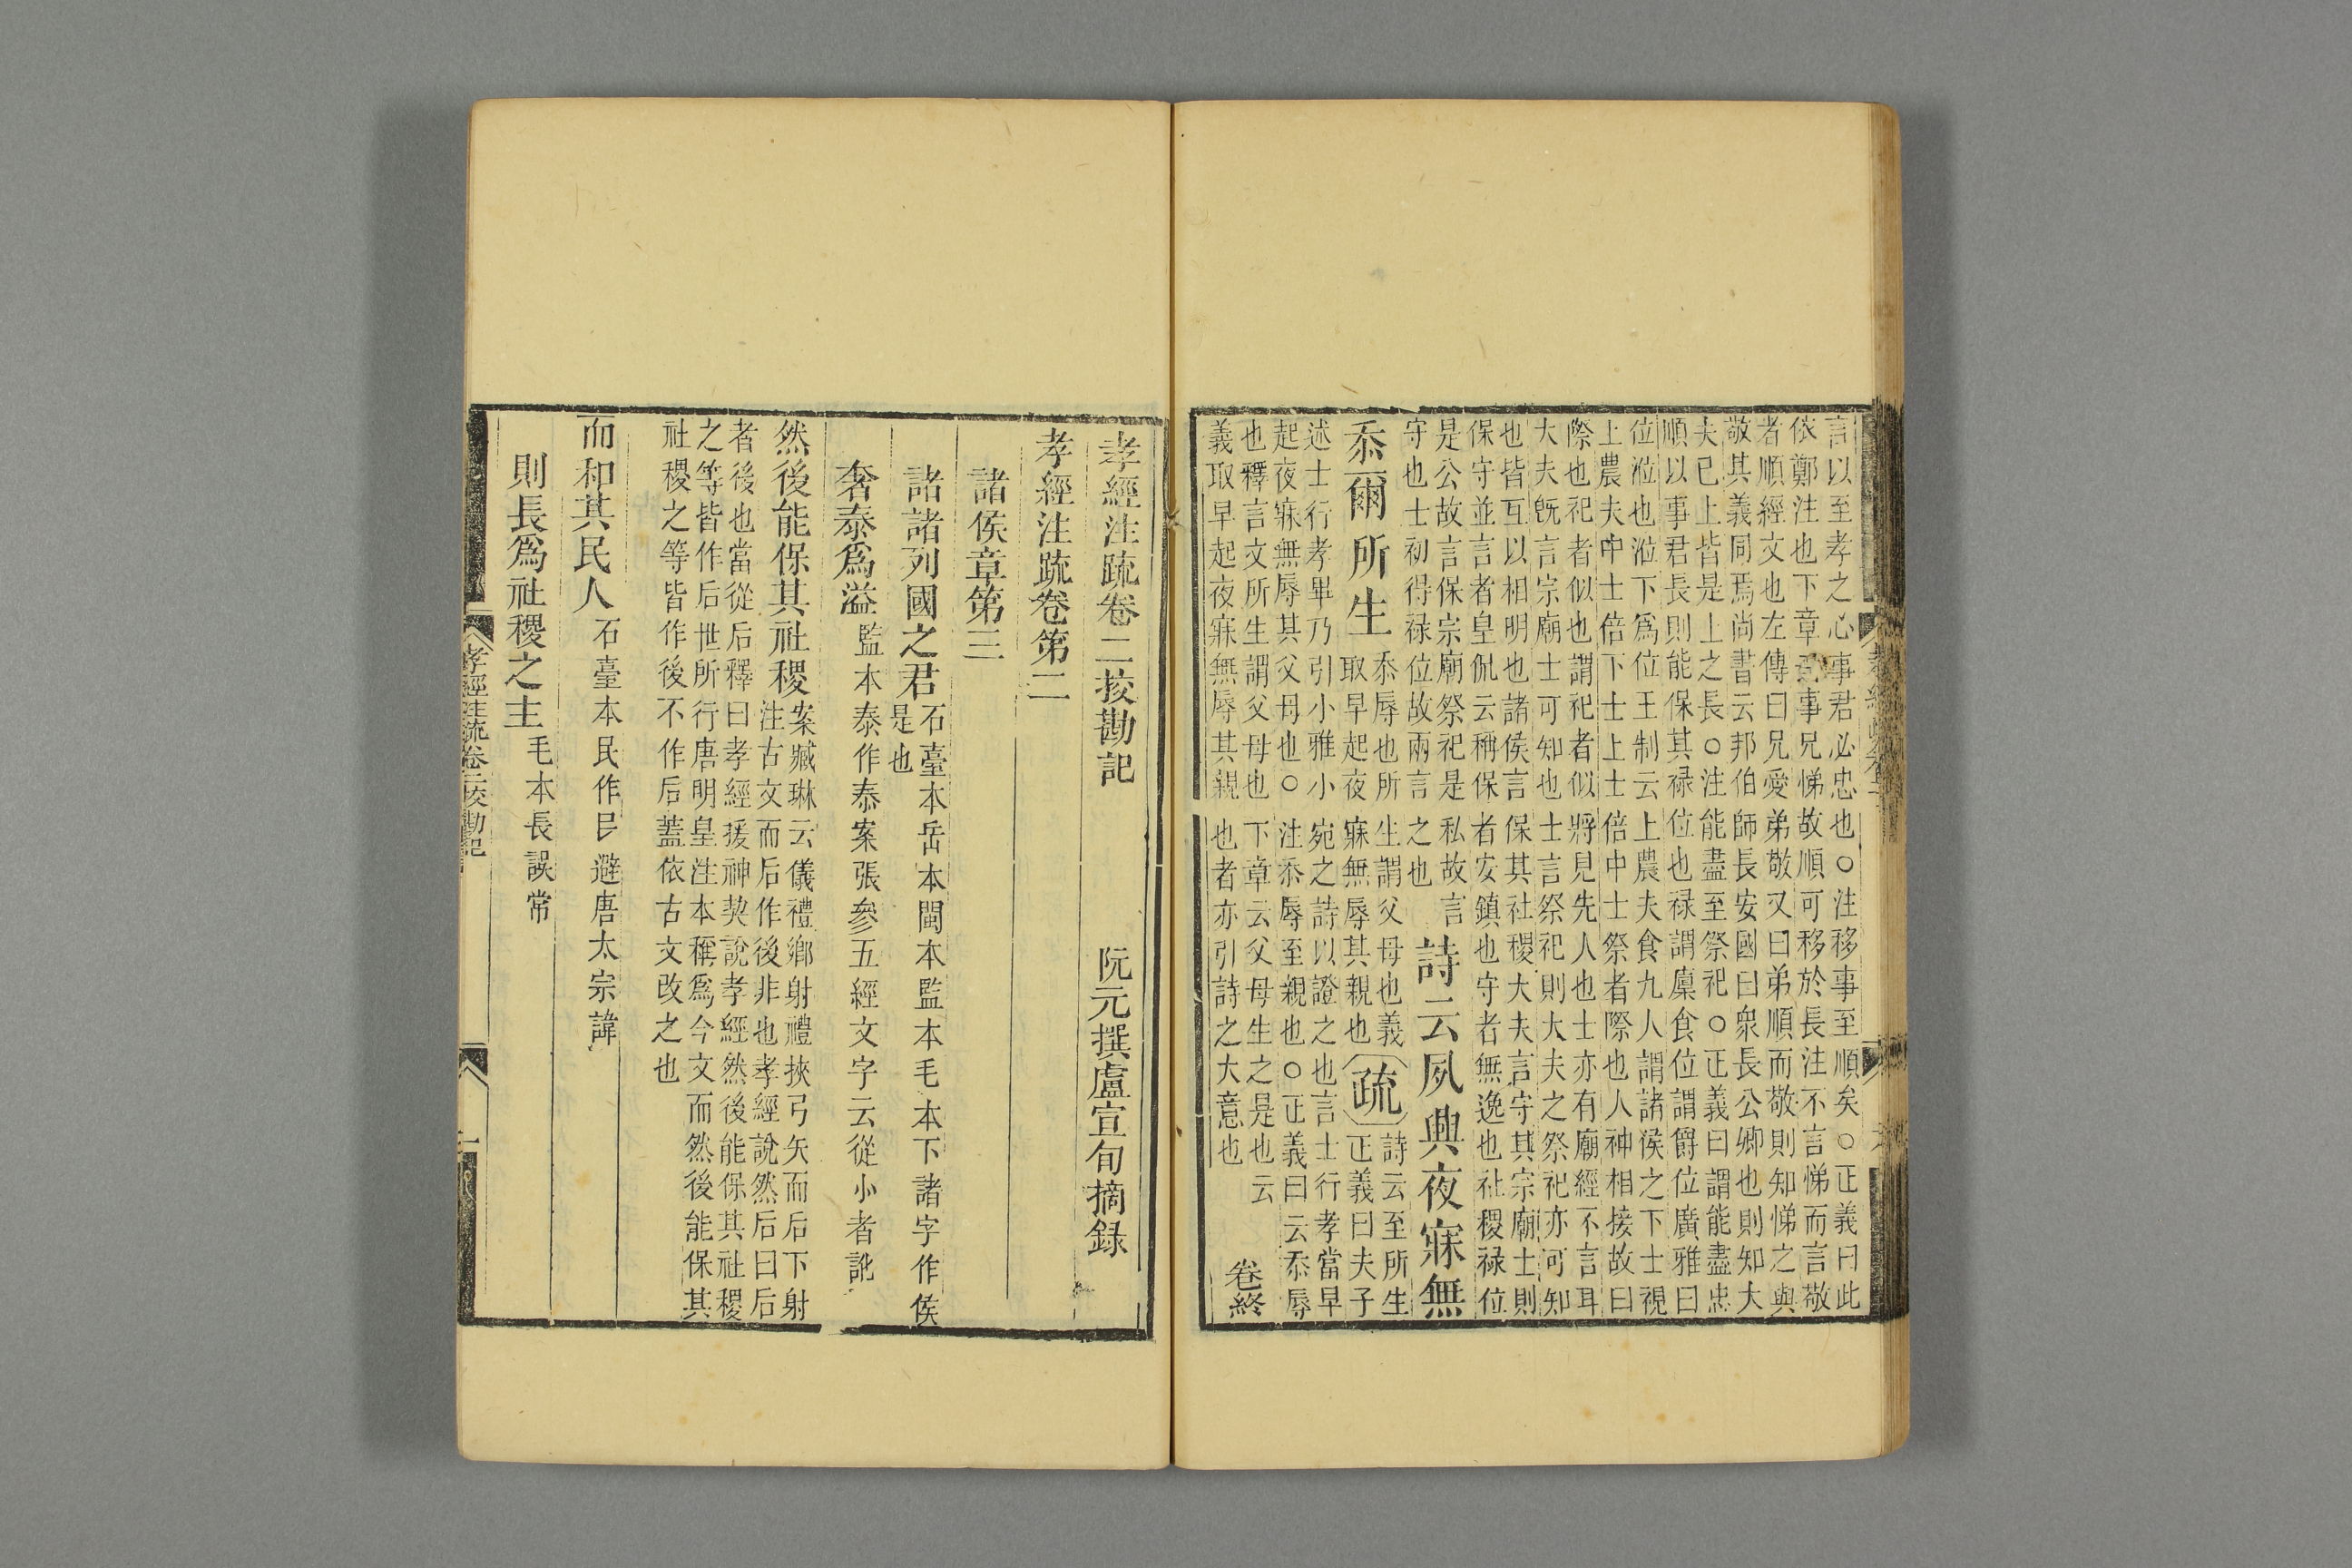 言以至孝之心事君必忠也○注移事至順矣○正義曰此
依鄭注也下章事兄悌故順可移於長注不言悌而言敬
者順經文也左傳曰兄愛弟敬又曰弟順而敬則知悌之與
敬其義同焉尚書云邦伯師長安國曰衆長公卿也則知大
夫已上皆是上之長○注能盡至祭祀○正義曰謂能盡忠
順以事君長則能保其禄位也禄謂廩食位謂爵位廣雅曰
位涖也涖下爲位王制云上農夫食九人謂諸侯之下士視
上農夫中士倍下士上士倍中士祭者際也人神相接故曰
際也祀者似也謂祀者似將見先人也士亦有廟經不言耳
大夫既言宗廟士可知也士言祭祀則大夫之祭祀亦可知
也皆互以相明也諸侯言保其社稷大夫言守其宗廟士則
保守並言者皇侃云稱保者安鎮也守者無逸也社稷禄位
是公故言保宗廟祭祀是私故言
守也士初得禄位故兩言之也
詩云夙興夜寐無
忝爾所生
忝辱也所生謂父母也義
取早起夜寐無辱其親也
疏
詩云至所生
正義曰夫子
述士行孝畢乃引小雅小宛之詩以證之也言士行孝當早
起夜寐無辱其父母也○注忝辱至親也○正義曰云忝辱
也釋言文所生謂父母也下章云父母生之是也云
義取早起夜寐無辱其親也者亦引詩之大意也
卷終
孝經注疏卷二挍勘記
阮元撰盧宣旬摘録
孝經注疏卷第二
諸侯章第三
諸諸列國之君
石臺本岳本閩本監本毛本下諸字作侯
是也
奢泰爲溢
監本泰作㤗案張參五經文字云從小者訛
然後能保其社稷
案臧琳云儀禮鄉射禮挾弓矢而后下射
注古文而后作後非也孝經說然后曰后
者後也當從后釋曰孝經援神契說孝經然後能保其社稷
之等皆作后世所行唐明皇注本稱爲今文而然後能保其
社稷之等皆作後不作后蓋依古文改之也
而和其民人
石臺本民作㠯避唐太宗諱
則長爲社稷之主
毛本長誤常
孝經注疏卷二校勘記
一